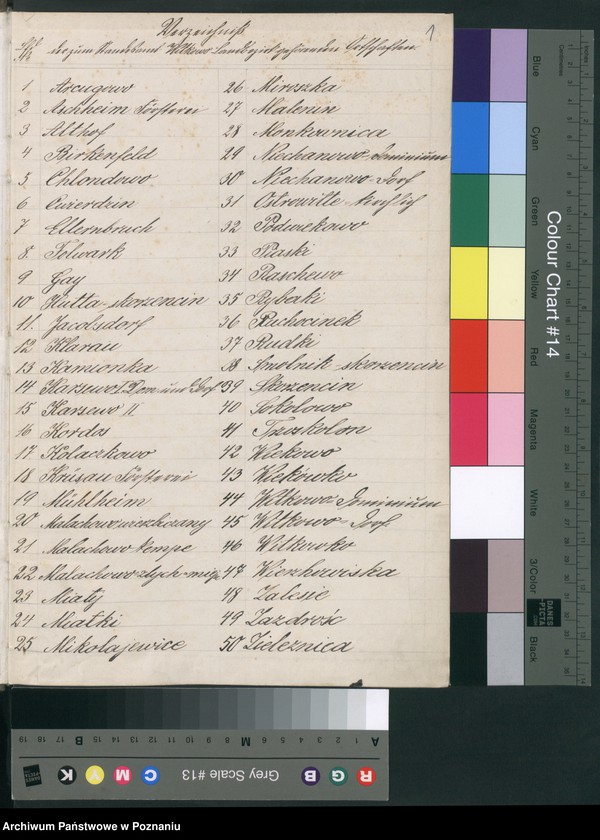 Verzeichniß
der zum Standesamt Witkowo Landbezirk gehörenden Ortschaften
1
1 Arcugowo
2 Aschheim Försterei
3 Althof
4 Birkenfeld
5. Chlondowo
6 Cwierdzin
7 Ellernbruch
8. Folwark
9 Gay
10 Hutta-skorzencin
11. Jacobsdorf
12 Klarau
13 Kamionka
14 Karsewo I Dom. und Dorf
15 Karsewo II
16 Kordos
17 Kolaczkowo
18 Krüsau Försterei
19 Mühlheim
20 Malachowo wierzbiczany
21 Malachowo kempe
22 Malachowo zlych-miejsc
23 Miaty
24 Miatki
25 Mikolajewice
26 Miroszka
27 Malenin
28 Monkownica
29 Niechanowo-Dominium
30 Niechanowo-Dorf
31 Ostrowitte-
32 Podwiekowo
33 Piaski
34 Piaschewo
35 Rybaki
36 Ruchocinek
37 Rudki
38 Smolnik-skorzencin
39 Skorzencin
40 Sokolowo
41 Trzuskolon
42 Wiekowo
43 Wiekowko
44 Witkowo-Dominium
45 Witkowo-Dorf
46 Witkowko
47 Wierzchowiska
48 Zalesie
49 Zazdrość
50 Zieleznica
Colour Chart #14
Blue
Cyan
Green
Yellow
Red
Magenta
White
3/Color
Black
DANES PICTA
Grey Scale #13
R G B C M Y K
A 1 2 3 4 5 6 M 8 9 10 11 12 13 14 15 B 17 18 19
Archiwum Państwowe w Poznaniu